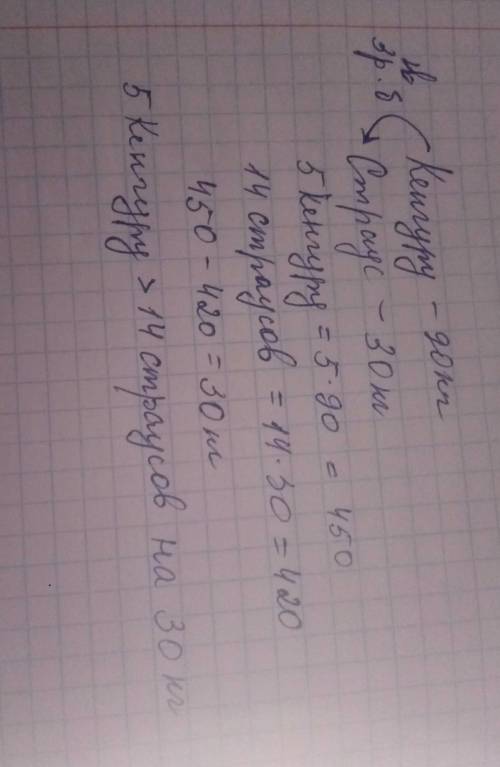 Кенгуру - 90 кг
в 3 р. б
Страус - 30 кг
5 кенгуру = 5·90 = 450
14 страусов = 14·30 = 420
450 - 420 = 30 кг
5 кенгуру > 14 страусов на 30 кг